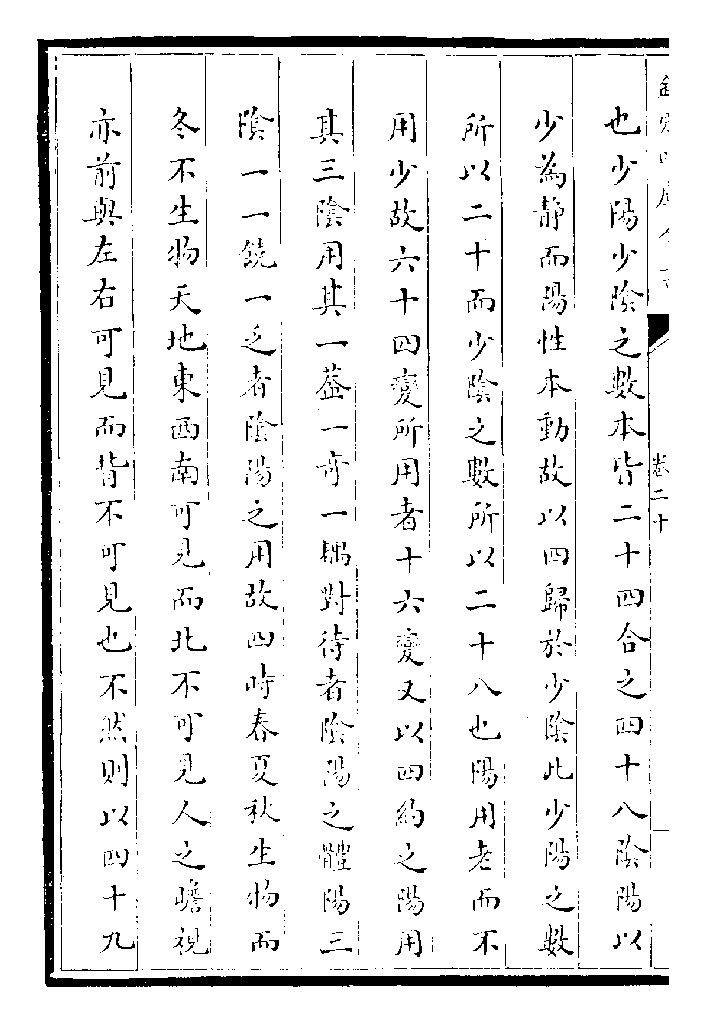 欽定四庫全書
卷二十
也少陽少陰之數本皆二十四合之四十八陰陽以
少為静而陽性本動故以四歸於少陰此少陽之數
所以二十而少陰之數所以二十八也陽用老而不
用少故六十四變所用者十六變又以四約之陽用
其三陰用其一葢一奇一耦對待者陰陽之體陽三
陰一一饒一乏者陰陽之用故四時春夏秋生物而
冬不生物天地東西南可見而北不可見人之瞻視
亦前與左右可見而背不可見也不然則以四十九